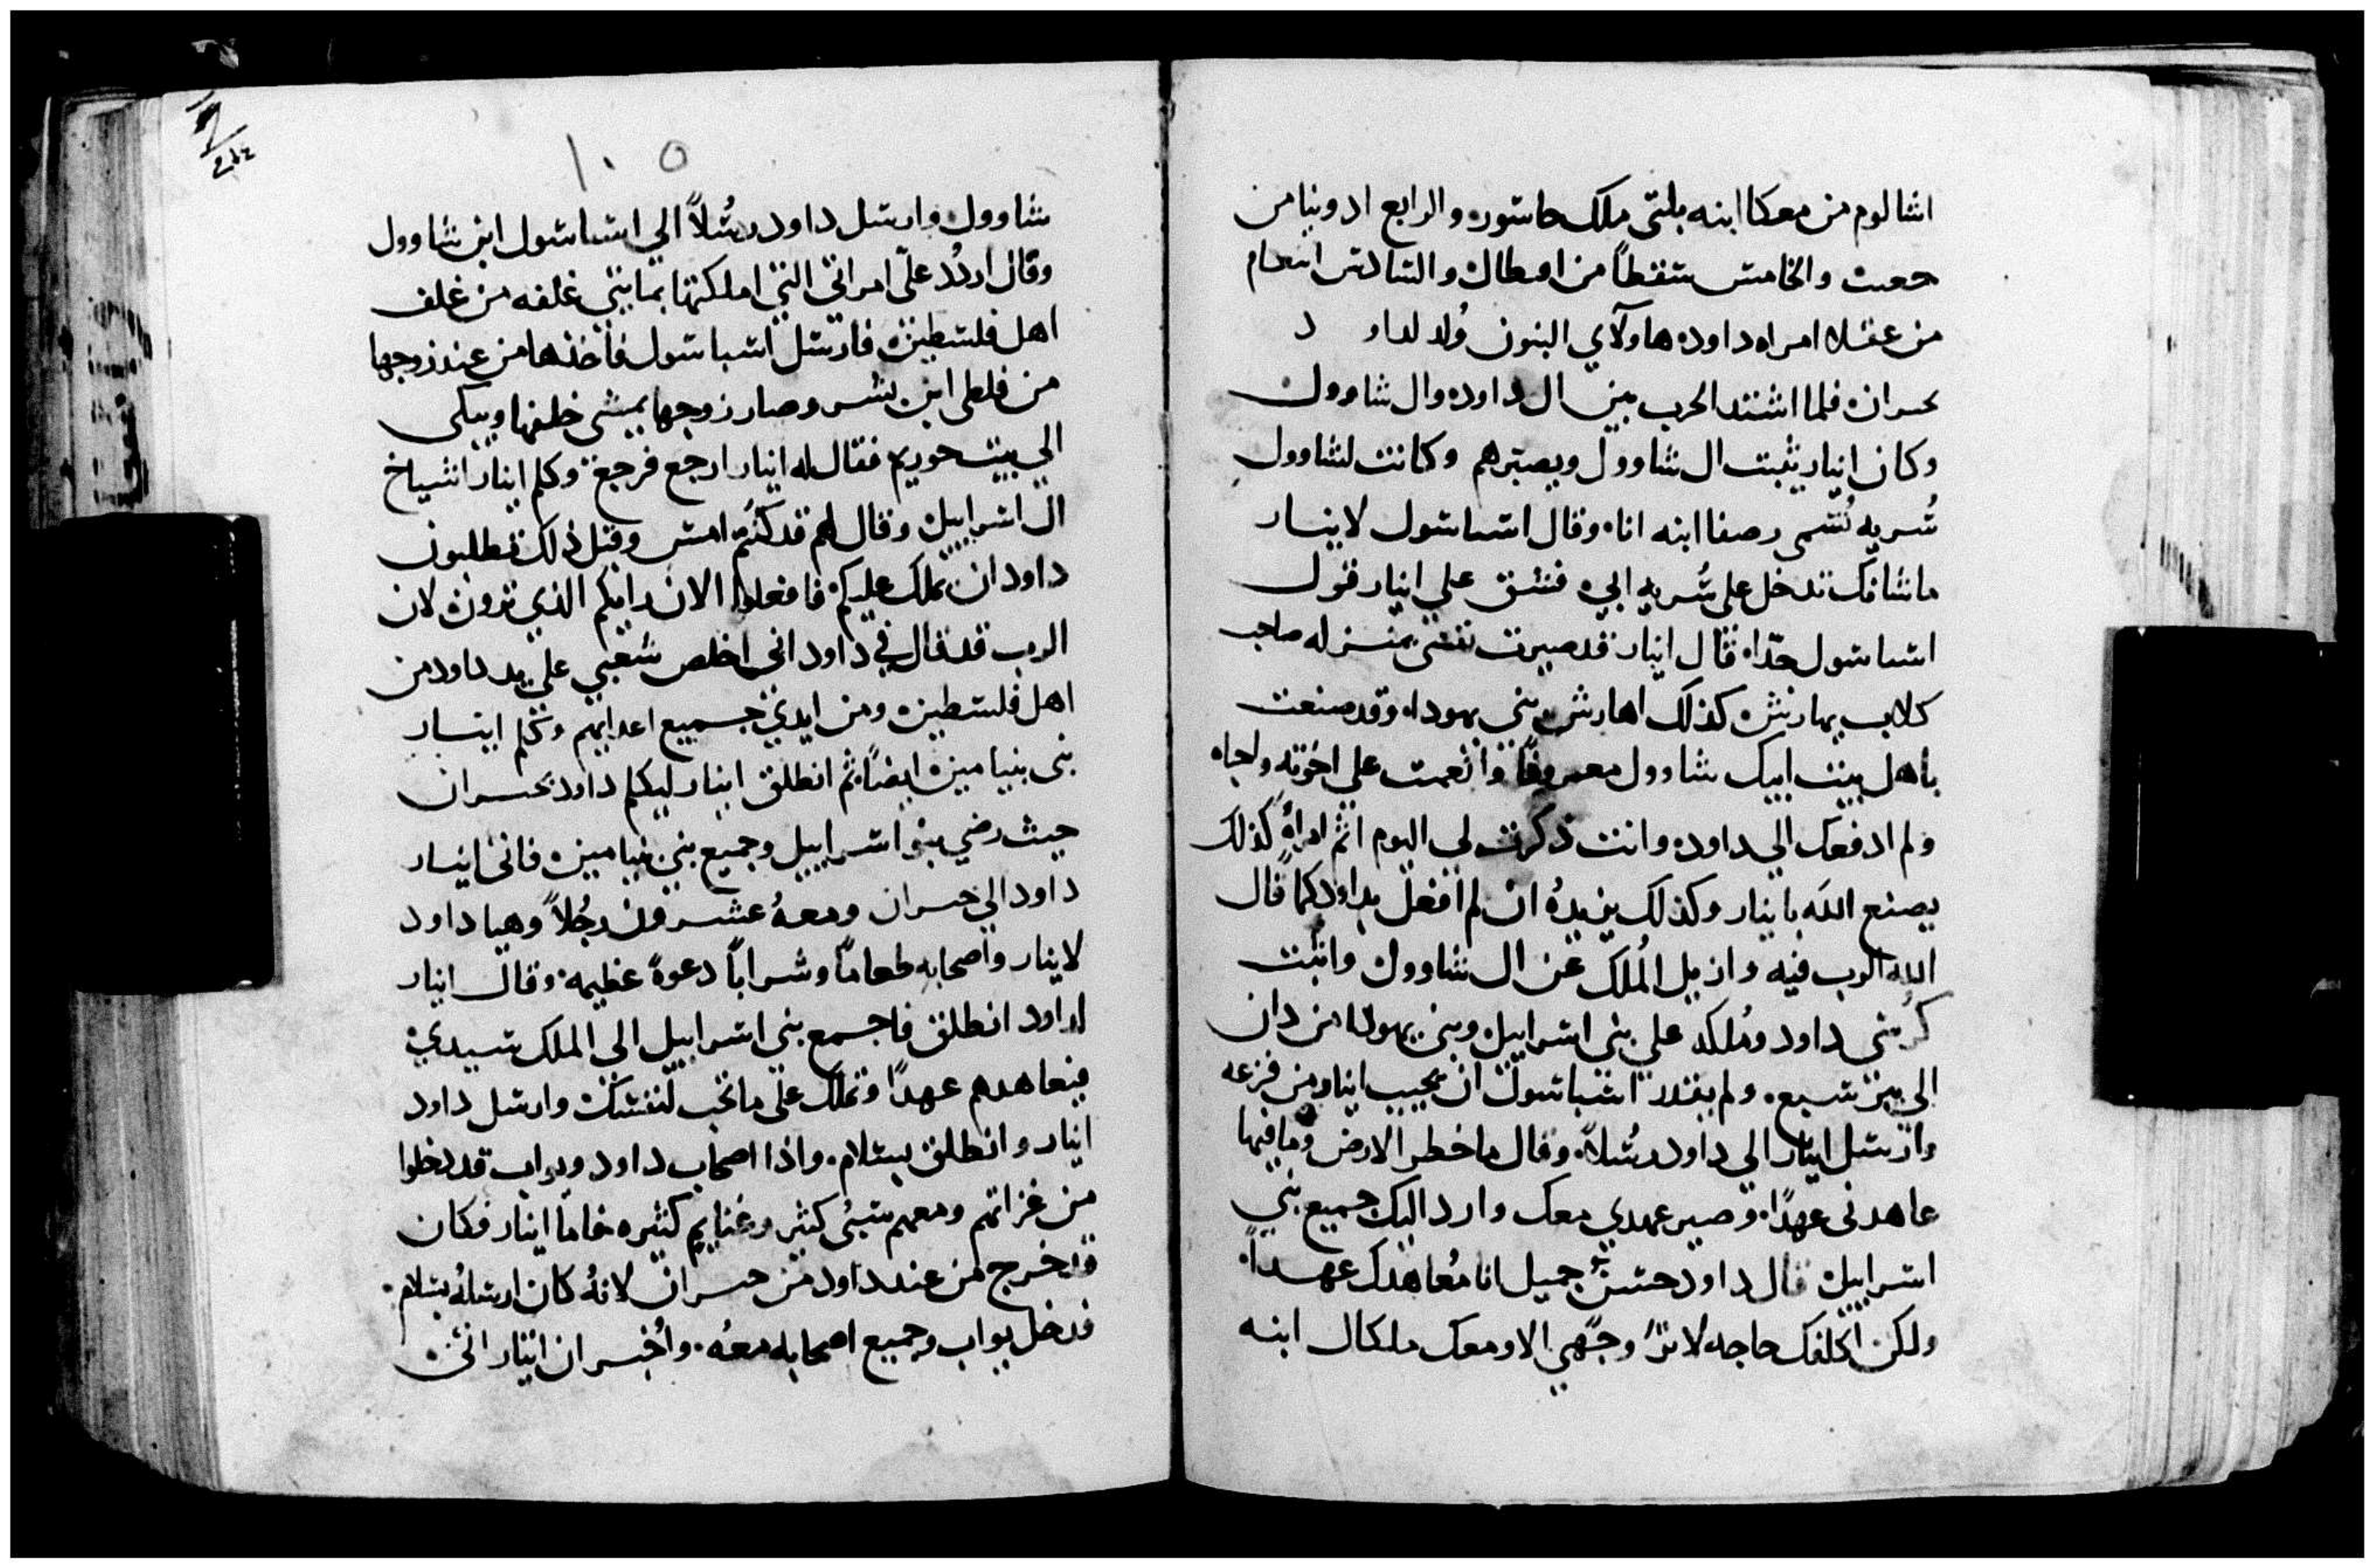 اشالوم من معكا ابنه بلتى ملك حاشور والرابع ادونيا من
حعيت والخامس سفطاً من اوطال والسادس اسعام
من عقلا امراه داود هاولاي البنون وُلد لداود
بحبران فلما اشتد الحرب بين ال داود وال شاوول
وكان ابنار يثبت ال شاوول ويصبّرهم وكانت لشاوول
سُريه تُسمى رصفا ابنه انا وقال اشباشول لابنار
ما شانك تدخل على سُريه ابي فشق علي ابنار قول
اشباشول جدّا قال ابنار قد صيرت نفسي بمنزله صاحب
كلاب يهارش كذلك اهارش بني يهودا وقد صنعت
باهل بيت ابيك شاوول معروفاً وانعمت علي اخوته واحباه
ولم ادفعك الي داود وانت ذكرت لي اليوم اثم امراةٍ كذلك
يصنع الله بابنار وكذلك يزيدهُ ان لم افعل بداود كما قال
الله الرب فيه وازيل المُلك عن ال شاوول واثبت
كرسي داود ومُلكه علي بني اسراييل وبني يهودا من دان
الي بير سبع ولم يقدر اشباشول ان يجيب ابنار من فزعه
وارسل ابنار الي داود رسُلاً وقال ما خطر الارض وما فيها
عاهدني عهدًا وصير عهدي معك وارد اليك جميع بني
اسراييل قال داود حسنٌ جميل انا مُعاهدك عهداً
ولكن اكلفك حاجه لا تر وجهي الا ومعك ملكال ابنه
١٠٥
شاوول وارسل داود رسُلاً الي اشباشول ابن شاوول
وقال اردُد عليّ امراتي التي املكتها بمايتي غلفه من غلف
اهل فلسطين فارسل اشباشول فاخذها من عند زوجها
من فلطى ابن ليس وصار زوجها يمشي خلفها ويبكي
الي بيت حوريم فقال له ابنار ارجع فرجع وكلم ابنار اشياخ
ال اسراييل وقال لهم قد كنتم امس وقبل ذلك تطلبون
داود ان يملك عليكم فافعلوا الان رايكم الذي ترون لان
الرب قد قال في داود اني اخلص شعبي علي يد داود من
اهل فلسطين ومن ايدي جميع اعدايهم وكلم ابنار
بني بنيامين ايضاً ثم انطلق ابنار ليكلم داود بحبران
حيث رضي بنو اسراييل وجميع بني بنيامين فاتى ابنار
داود الي حبران ومعهُ عشرون رجُلاً وهيا داود
لابنار واصحابه طعاماً وشراباً دعوةً عظيمه وقال ابنار
لداود انطلق فاجمع بني اسراييل الى الملك سيدي
فيعاهدهم عهدًا وتملك علي ما تحب لنفسك وارسل داود
ابنار وانطلق بسلام واذا اصحاب داود ويواب قد دخلوا
من غزاتهم ومعهم سبي كثير وغنايم كثيره فاما ابنار فكان
قد خرج من عند داود من حبران لانهُ كان ارسلهُ بسلام
فدخل يواب وجميع اصحابه معهُ واُخبر ان ابنار اتى